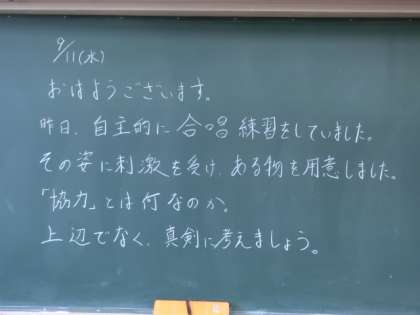 9/11(水)
おはようございます。
昨日、自主的に合唱練習をしていました。
その姿に刺激を受け、ある物を用意しました。
「協力」とは何なのか。
上辺でなく、真剣に考えましょう。